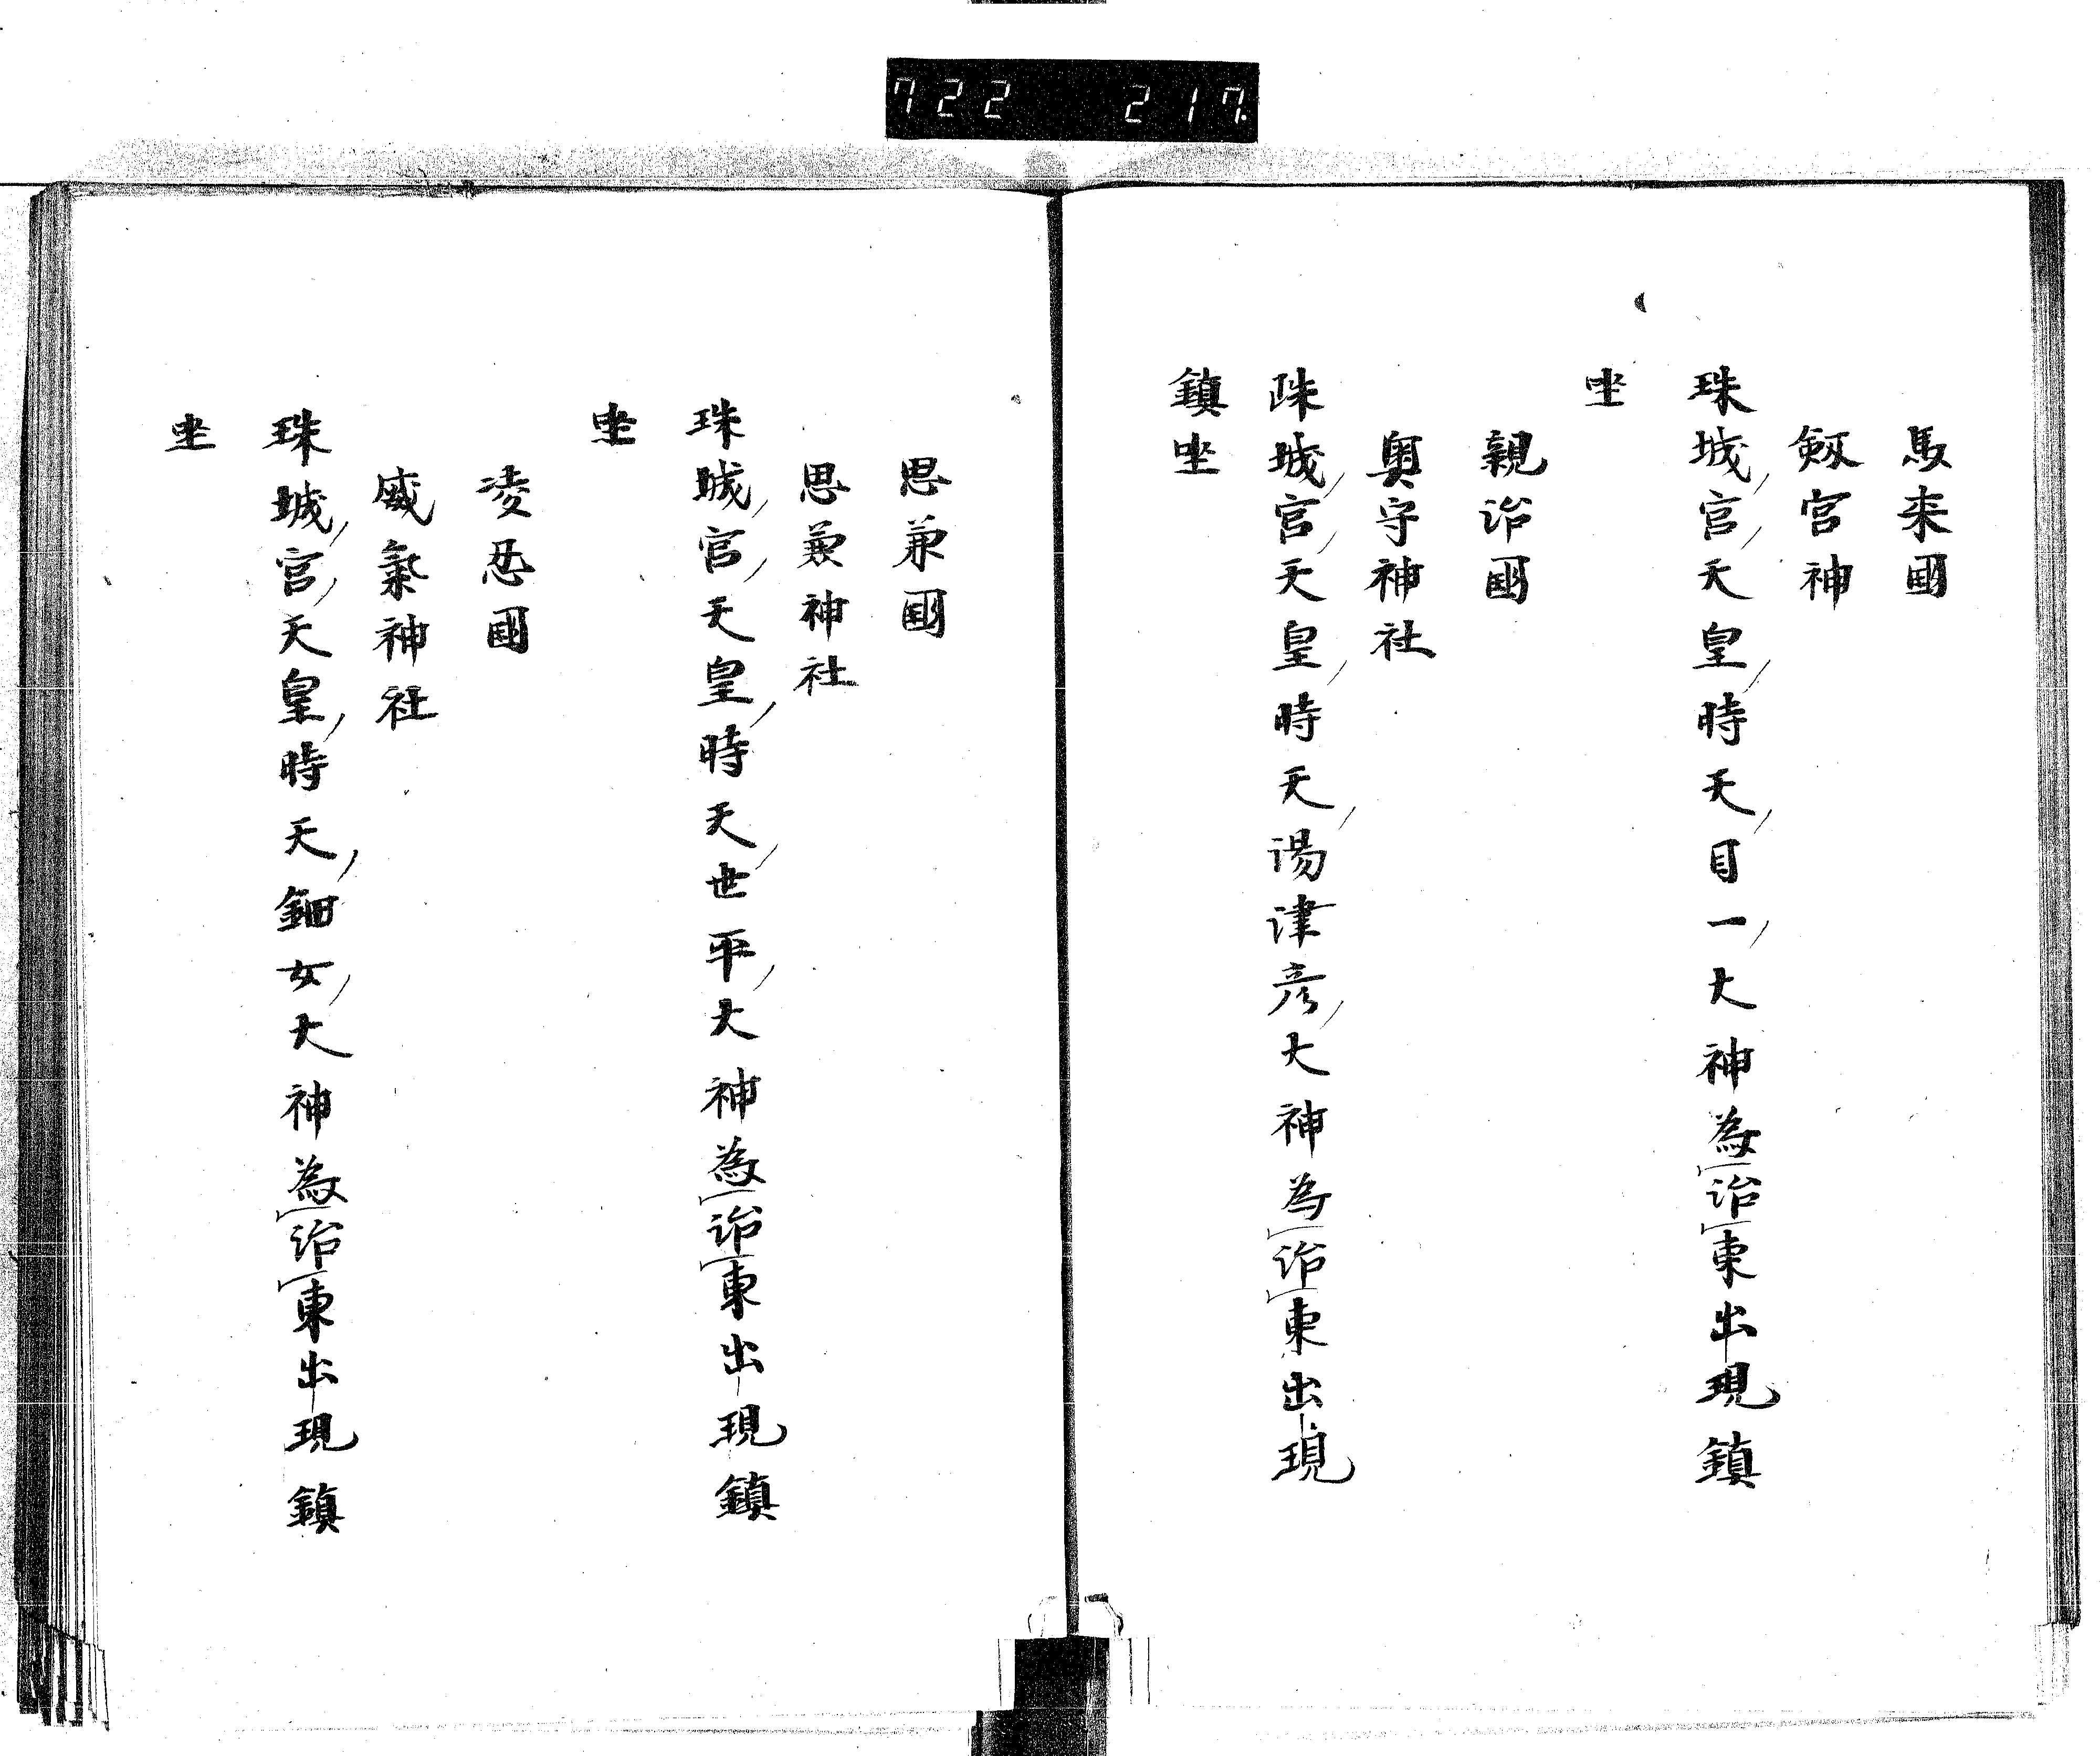 722 217.
馬来國
剱宮神
珠城宮天皇時天目一大神為治東出現鎮
坐
親治國
奥守神社
珠城宮天皇時天湯津彦大神為治東出現
鎮坐
思兼國
思兼神社
珠城宮天皇時天世平大神為治東出現鎮
坐
凌忍國
威氣神社
珠城宮天皇時天鈿女大神為治東出現鎮
坐